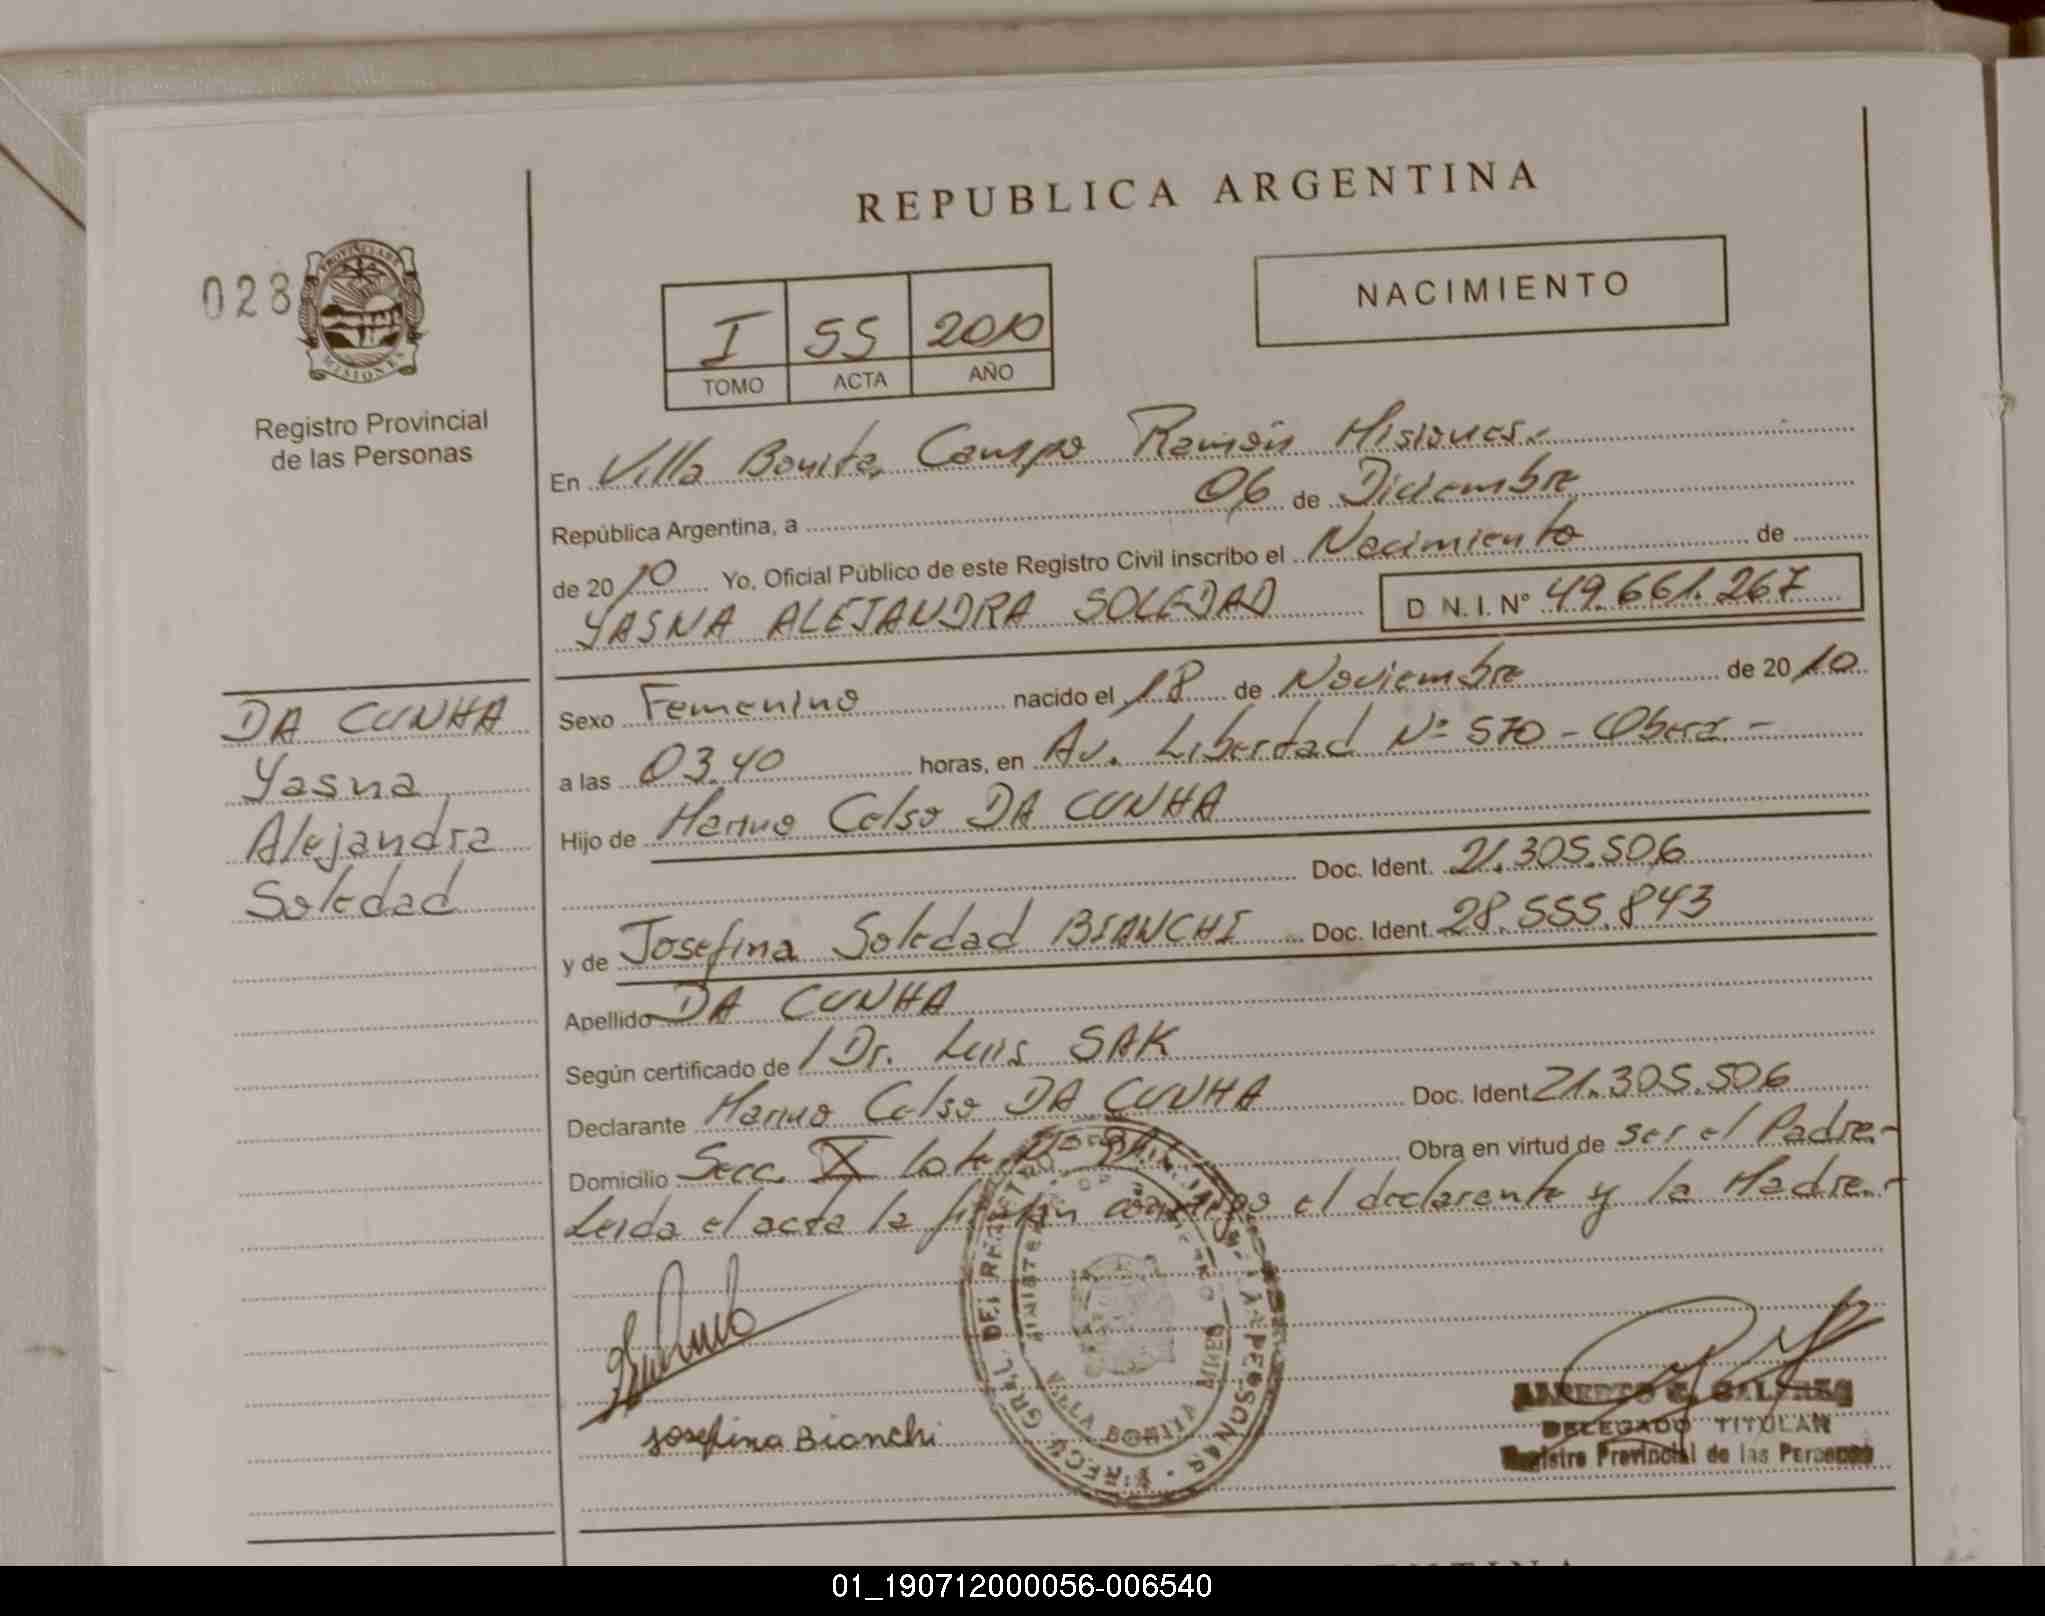 REPUBLICA ARGENTINA
028
PROVINCIA DE MISIONES
Registro Provincial
de las Personas
NACIMIENTO
I 55 2010
TOMO ACTA AÑO
En Villa Bonita, Campo Ramón Misiones.-
República Argentina, a 06 de Diciembre
de 2010 Yo, Oficial Público de este Registro Civil inscribo el Nacimiento de
YASNA ALEJANDRA SOLEDAD D N.I. Nº 49.661.267
Sexo Femenino nacido el 18 de Noviembre de 2010
a las 03.40 horas, en Av. Libertad Nº 570 - Oberá -
Hijo de Celso DA CUNHA
Doc. Ident. 21.305.506
y de Josefina Soledad BIANCHI Doc. Ident. 28.555.843
Apellido DA CUNHA
Según certificado de Dr. Luis SAK
Declarante Celso DA CUNHA Doc. Ident 21.305.506
Domicilio Secc. X Lote Obra en virtud de ser el Padre-
Leida el acta la firman conmigo el declarante y la Madre.-
DA CUNHA
Yasna
Alejandra
Soledad
Josefina Bianchi
VILLA BONITA
DELEGADO TITULAR
Registro Provincial de las Personas
01_190712000056-006540